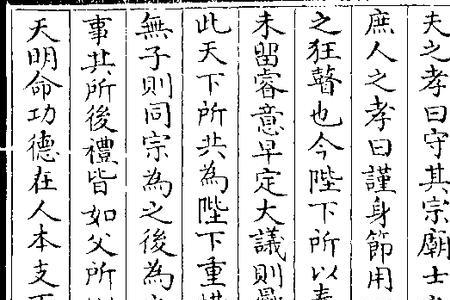 夫之孝曰守其宗廟士
庶人之孝曰謹身節用
之狂瞽也今陛下所以奉
未留睿意早定大議則
此天下所共為陛下重惜
無子則同宗為之後為
事其所後禮皆如父所
天明命功德在人本支百